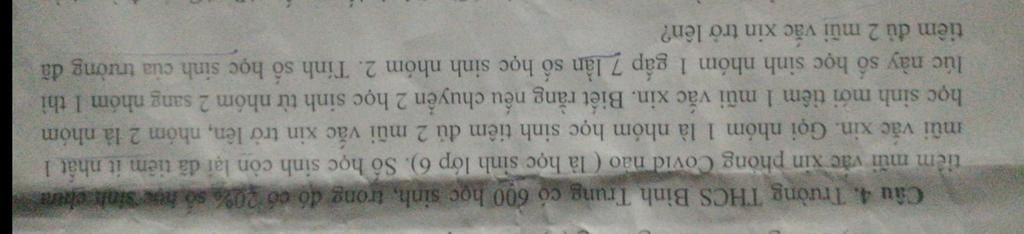 Câu 4. Trường THCS Bình Trung có 600 học sinh, trong đó có 20% số học sinh chưa
tiêm mũi vắc xin phòng Covid nào ( là học sinh lớp 6). Số học sinh còn lại đã tiêm ít nhất 1
mũi vắc xin. Gọi nhóm 1 là nhóm học sinh tiêm đủ 2 mũi vắc xin trở lên, nhóm 2 là nhóm
học sinh mới tiêm 1 mũi vắc xin. Biết rằng nếu chuyển 2 học sinh từ nhóm 2 sang nhóm 1 thì
lúc này số học sinh nhóm 1 gấp 7 lần số học sinh nhóm 2. Tính số học sinh của trường đã
tiêm đủ 2 mũi vắc xin trở lên?